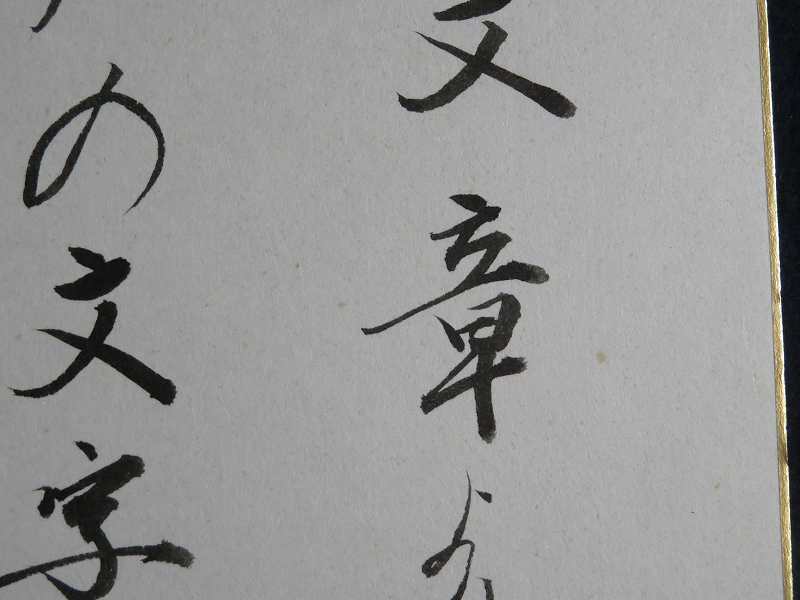 文章よ
の文字